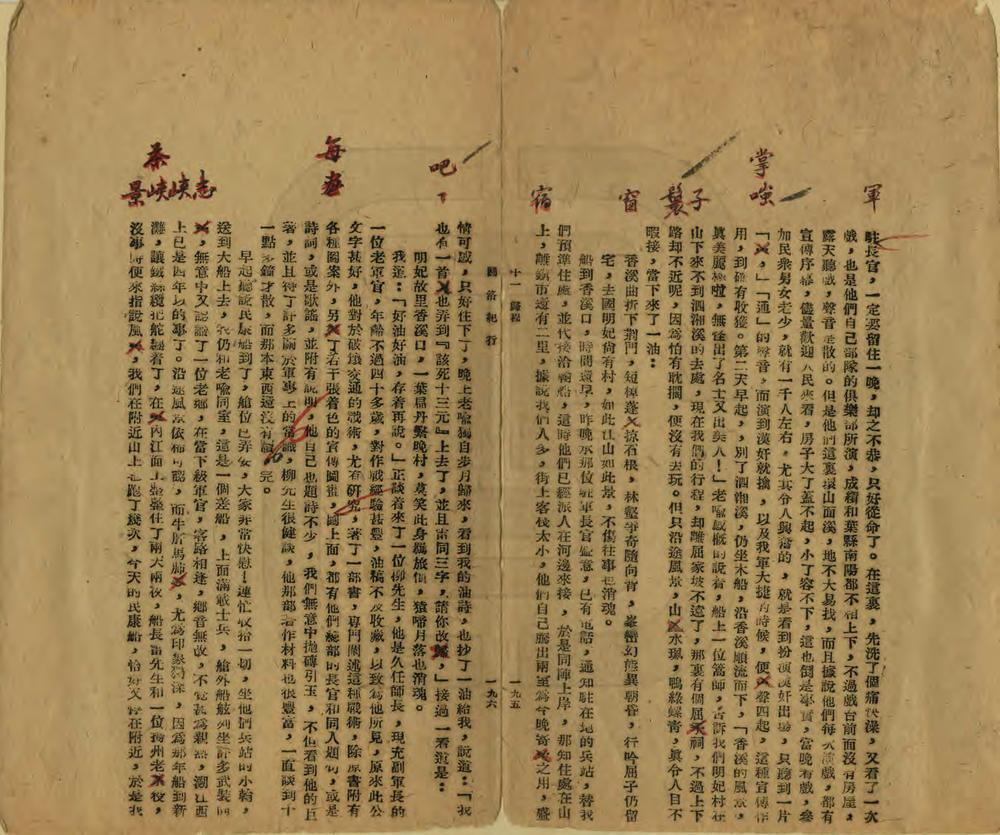 軍
掌
嗤
鬟子
窗
宿
駐長官，一定要留住一晚，却之不恭，只好從命了。在這裏，先洗了個痛快澡，又看了一次
戲，也是他們自己部隊的俱樂部所演，成績和葉縣南陽都不相上下，不過戲台前面沒有房屋，
露天聽戲，聲音走散的。但是他們這裏環山面溪，地不大易找，而且據說他們每次演戲，都有
宣傳序幕，儘量歡迎人民來看，房子大了蓋不起，小了容不下，這也倒是事實，當晚看戲，參
加民衆男女老少，就有一千人左右。尤其令人興奮的，就是看到扮演漢奸出場，只聽到一片
「」，「通」的聲音，而演到漢奸就擒，以及我軍大捷的時候，便聲四起，這種宣傳作
用，到確有收獲。第二天早起，別了泗湘溪，仍坐木船，沿香溪順流而下，「香溪的風景，
真美麗極啦，無怪出了名士又出美人！」老喻感慨的說着，船上一位篙師，告訴我們明妃村在
山下來不到泗湘溪的去處，現在我們的行程，却離屈家坡不遠了，那裏有個屈祠，不過上下
路却不近呢，因為怕有耽擱，便沒有去玩。但只沿途風景，山水珮，鴨綠螺青，真令人目不
暇接，當下來了一油：
香溪曲折下荆門，短棹蓬掠石根，林壑爭奇隨向背，峯巒幻態異朝昏，行吟屈子仍留
宅，去國明妃尚有村，如此江山如此景，不傷往事也消魂。
船到香溪口，時間還早，昨晚承那位駐軍長官盛意，已有電話，通知駐在地的兵站，替我
們預準住處，並代接洽輪船，這時他們已經派人在河邊來接，於是同陣上岸，那知住處在山
上，離鎮市還有二里，據說我們人多，街上客棧太小，他們自己騰出兩至為今晚寄之用，盛
十一 歸程
一九五
國洛紀行
一九六
吧
了
每
畫
茶
景峽峽志
情可感，只好住下了，晚上老喻獨自步月歸來，看到我的油詩，也抄了一油給我，說道：「我
也有一首，也弄到『該死十三元』上去了，並且雷同三字，請你改，」接過一看道是：
明妃故里香溪口，一葉扁舟繫晚村，莫笑此身羈旅慣，猿啼月落也消魂。
我逕：「好油好油，存着再說。」正談着來了一位柳先生，他是久任師長，現充副軍長的
一位老軍官，年齡不過四十多歲，對作戰經驗甚豐，油稿不及收藏，以致為他所見，原來此公
文字甚好，他對於破壞交通的戰術，尤有研究，著了一部書，專門闡述這種戰術，除原書附有
各種圖案外，另了若干張着色的宣傳圖畫，圖上面，都有他們總部的長官和同人題句，或是
詩詞，或是歌謠，並附有說明，他自己也題詩不少，我們無意中拋磚引玉，不但看到他的巨
著，並且得了許多關於軍事上的常識，柳先生很健談，他那部著作材料也很豐富，一直談到十
一點多鐘才散，而那本東西還沒有讀完。
早起聽說民康船到了，艙位已弄妥，大家非常快慰！連忙收拾一切，坐他們兵站的小輪，
送到大船上去，我仍和老喻同室，這是一個差船，上面滿載士兵，艙外船舷列坐許多武裝同
，無意中又認識了一位老鄉，在當下級軍官，客路相逢，鄉音無改，不覺甚為親熱，溯江西
上已是四年以前的事了。沿途風景依稀可認，而牛肝馬肺，尤為印象獨深，因為那年船到新
灘，讓鐵絲纜把舵纏着了，在內江面上張張住了兩天兩夜，船長雷先生和一位揚州老校，
沒事時便來指說風，我們在附近山上也跑了幾次，今天的民康船，恰好又停在附近，於是我